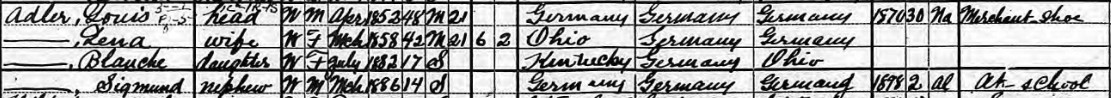 Adler, Louis head W M Apr 1852 48 M 21 Germany Germany Germany 1870 30 Na Merchant Shoe
——, Lena wife W F Mch 1858 42 M 21 6 2 Ohio Germany Germany
——, Blanche daughter W F July 1882 17 S Kentucky Germany Ohio
——, Sigmund nephew W M Mch 1886 14 S Germany Germany Germany 1898 2 Al At school